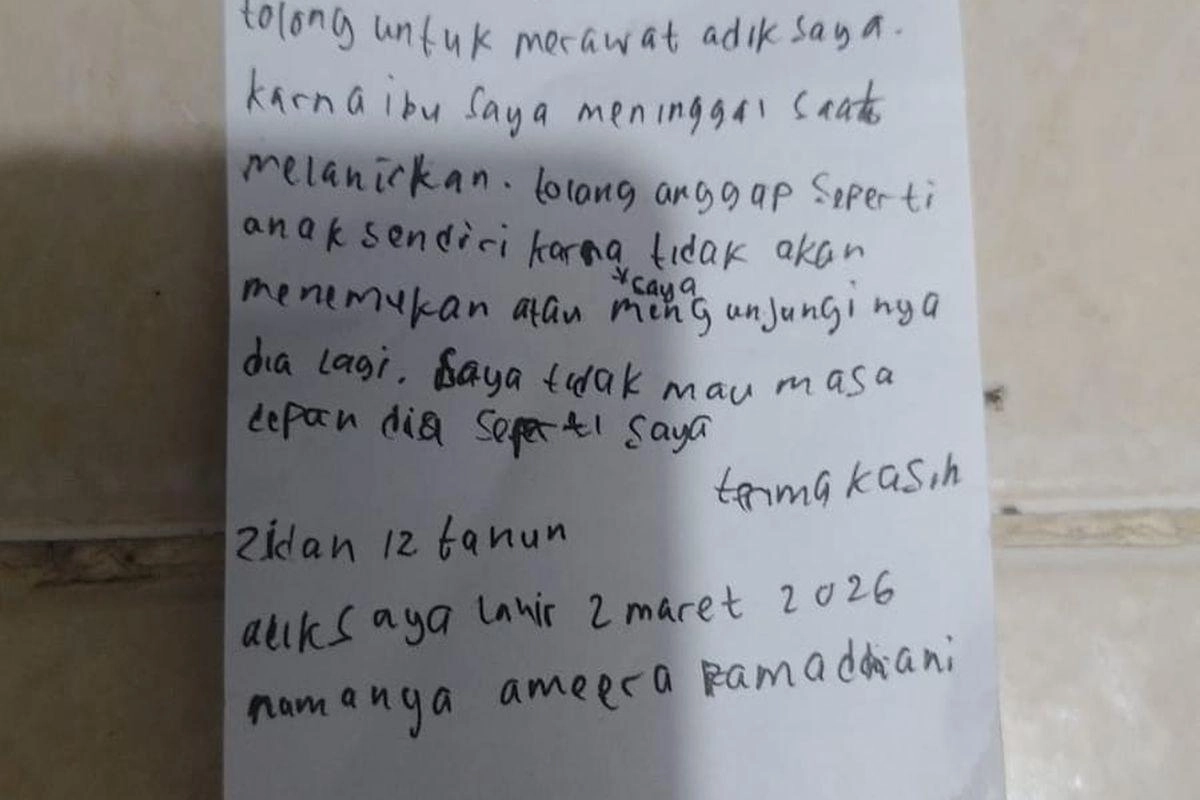 tolong untuk merawat adik saya.
karna ibu saya meninggal saat
melahirkan. tolong anggap seperti
anak sendiri karna tidak akan
*saya
menemukan atau mengunjungi nya
dia lagi. Saya tidak mau masa
depan dia seperti saya
trima kasih
Zidan 12 tahun
adik saya lahir 2 maret 2026
namanya ameera ramadhani